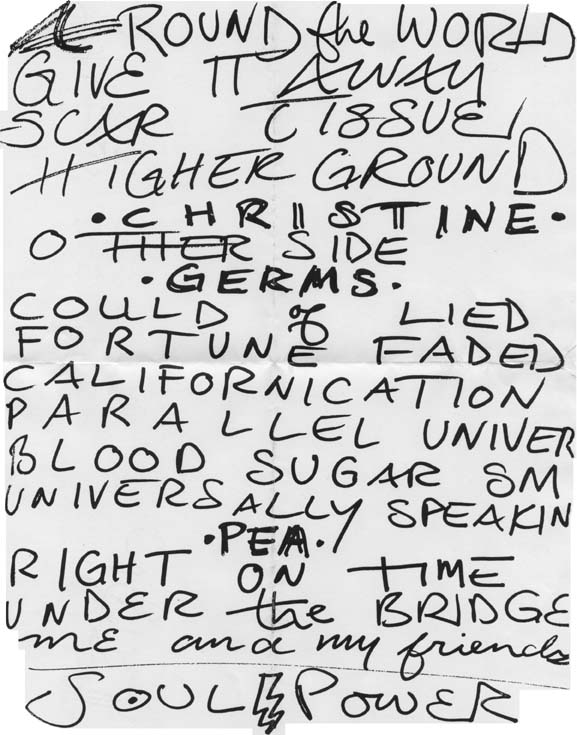 AROUND the WORLD
GIVE IT AWAY
SCAR TISSUE
HIGHER GROUND
• CHRISTINE •
OTHER SIDE
• GERMS •
COULD of LIED
FORTUNE FADED
CALIFORNICATION
PARALLEL UNIVER
BLOOD SUGAR SM
UNIVERSALLY SPEAKIN
• PEA •
RIGHT ON TIME
UNDER the BRIDGE
me and my friends
SOUL POWER